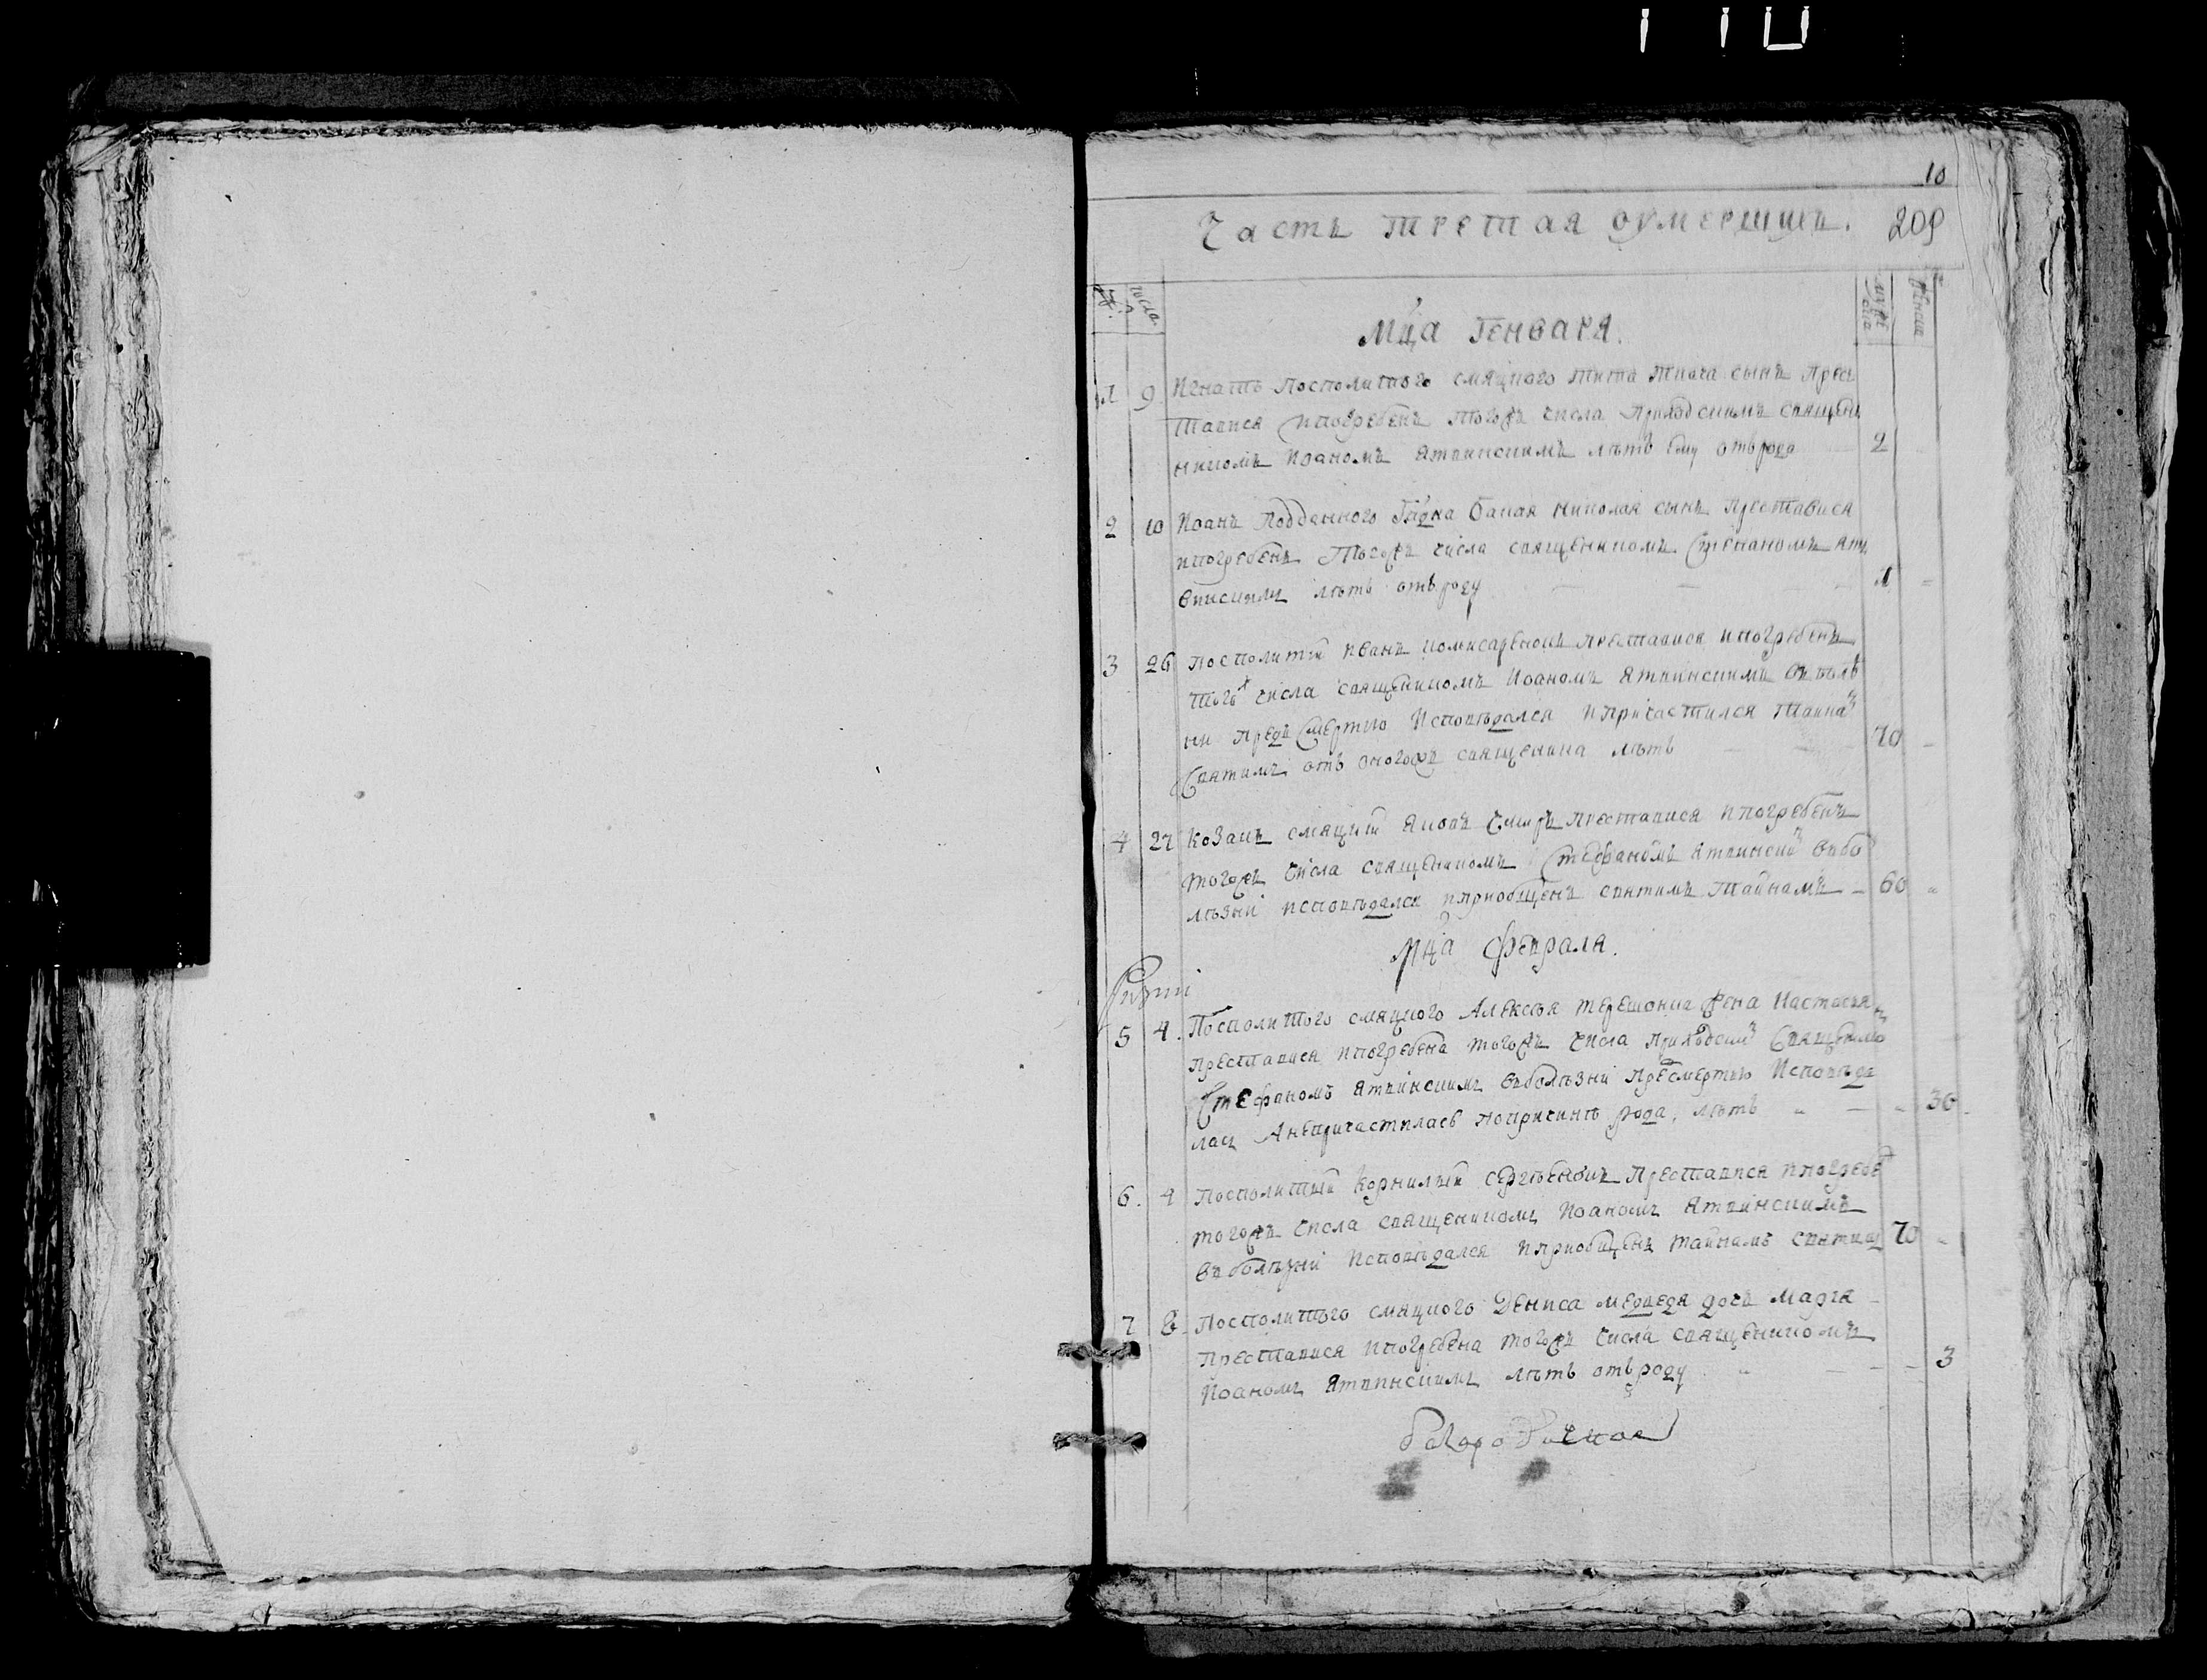 10
Часть третая оумершихъ. 209
№ числа мужеска женска
Мц̃а Генваря.
1 9 Игнатъ посполитого смяцкого Тита Ткача сынъ прес
тавися и погребенъ того жъ числа приходскимъ священ
никомъ Иоаномъ Ятвинскимъ лѣтъ ему отрода 2
2 10 Иоанъ подданного Николая сынъ преставися
и погребенъ того жъ числа священикомъ Стефаномъ Ят
винскимъ лѣтъ отъ роду 1
3 26 посполитій Иванъ Комисаренокъ преставися и погребенъ
того ж числа священикомъ Иоаномъ Ятвинскимъ въ болѣз
ни предъ смертию исповѣдался и причастился таина
святимъ отъ оногожъ священика лѣтъ 70
4 27 Козакъ смяцкій Яковъ преставися и погребенъ
тогожъ числа священикомъ Стефаномъ Ятвински въ бо
лѣзни исповѣдался и приобщенъ святимъ тайнамъ 60
Мц̃а Февраля.
5 4. Посполитого смяцкого Алексѣя Терешонка жена Настасія
преставися и погребена тогожъ числа приходским священико
Стефаномъ Ятвинскимъ въ болѣзни пред смертию исповѣда
лась а непричастилась по причинѣ рода, лѣтъ 30
6. 4 посполитый Корнилій Сергѣенокъ преставися и погребе
тогожъ числа священикомъ Иоаномъ Ятвинскимъ
въ болѣзни исповѣдался и приобщенъ тайнамъ святим 70
7 8 посполитого смяцкого Дениса Медведя дочь Марѳа
преставися и погребена тогожъ числа священикомъ
Иоаномъ Ятвинскимъ лѣтъ отъ роду 3